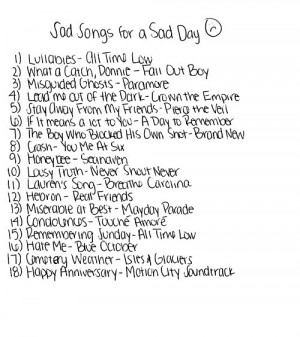 Sad Songs for a Sad Day
1) Lullabies - All Time Low
2) What a Catch, Donnie - Fall Out Boy
3) Misguided Ghosts - Paramore
4) Lead me out of the Dark - Crown the Empire
5) Stay Away From My Friends - Pierce the Veil
6) If It means a lot to You - A Day to Remember
7) The Boy Who Blocked His Own Shot - Brand New
8) Crash - You Me At Six
9) Honeybee - Seahaven
10) Lousy Truth - Never Shout Never
11) Lauren's Song - Breathe Carolina
12) Hebron - Real Friends
13) Miserable at Best - Mayday Parade
14) Condolences - Touché Amoré
15) Remembering Sunday - All Time Low
16) Hate Me - Blue October
17) Cemetery Weather - Isles & Glaciers
18) Happy Anniversary - Motion City Soundtrack